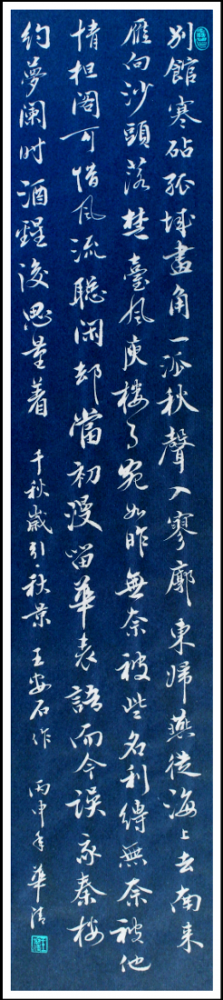 別館寒砧孤城畫角一派秋聲入寥廓東歸燕從海上去南來
雁向沙頭落楚臺風庾樓月宛如昨無奈被些名利縛無奈被他
情担閣可惜風流總閑却當初漫留華表語而今誤我秦樓
約夢闌时酒醒後思量着 千秋歲引·秋景 王安石作 丙申年 華清